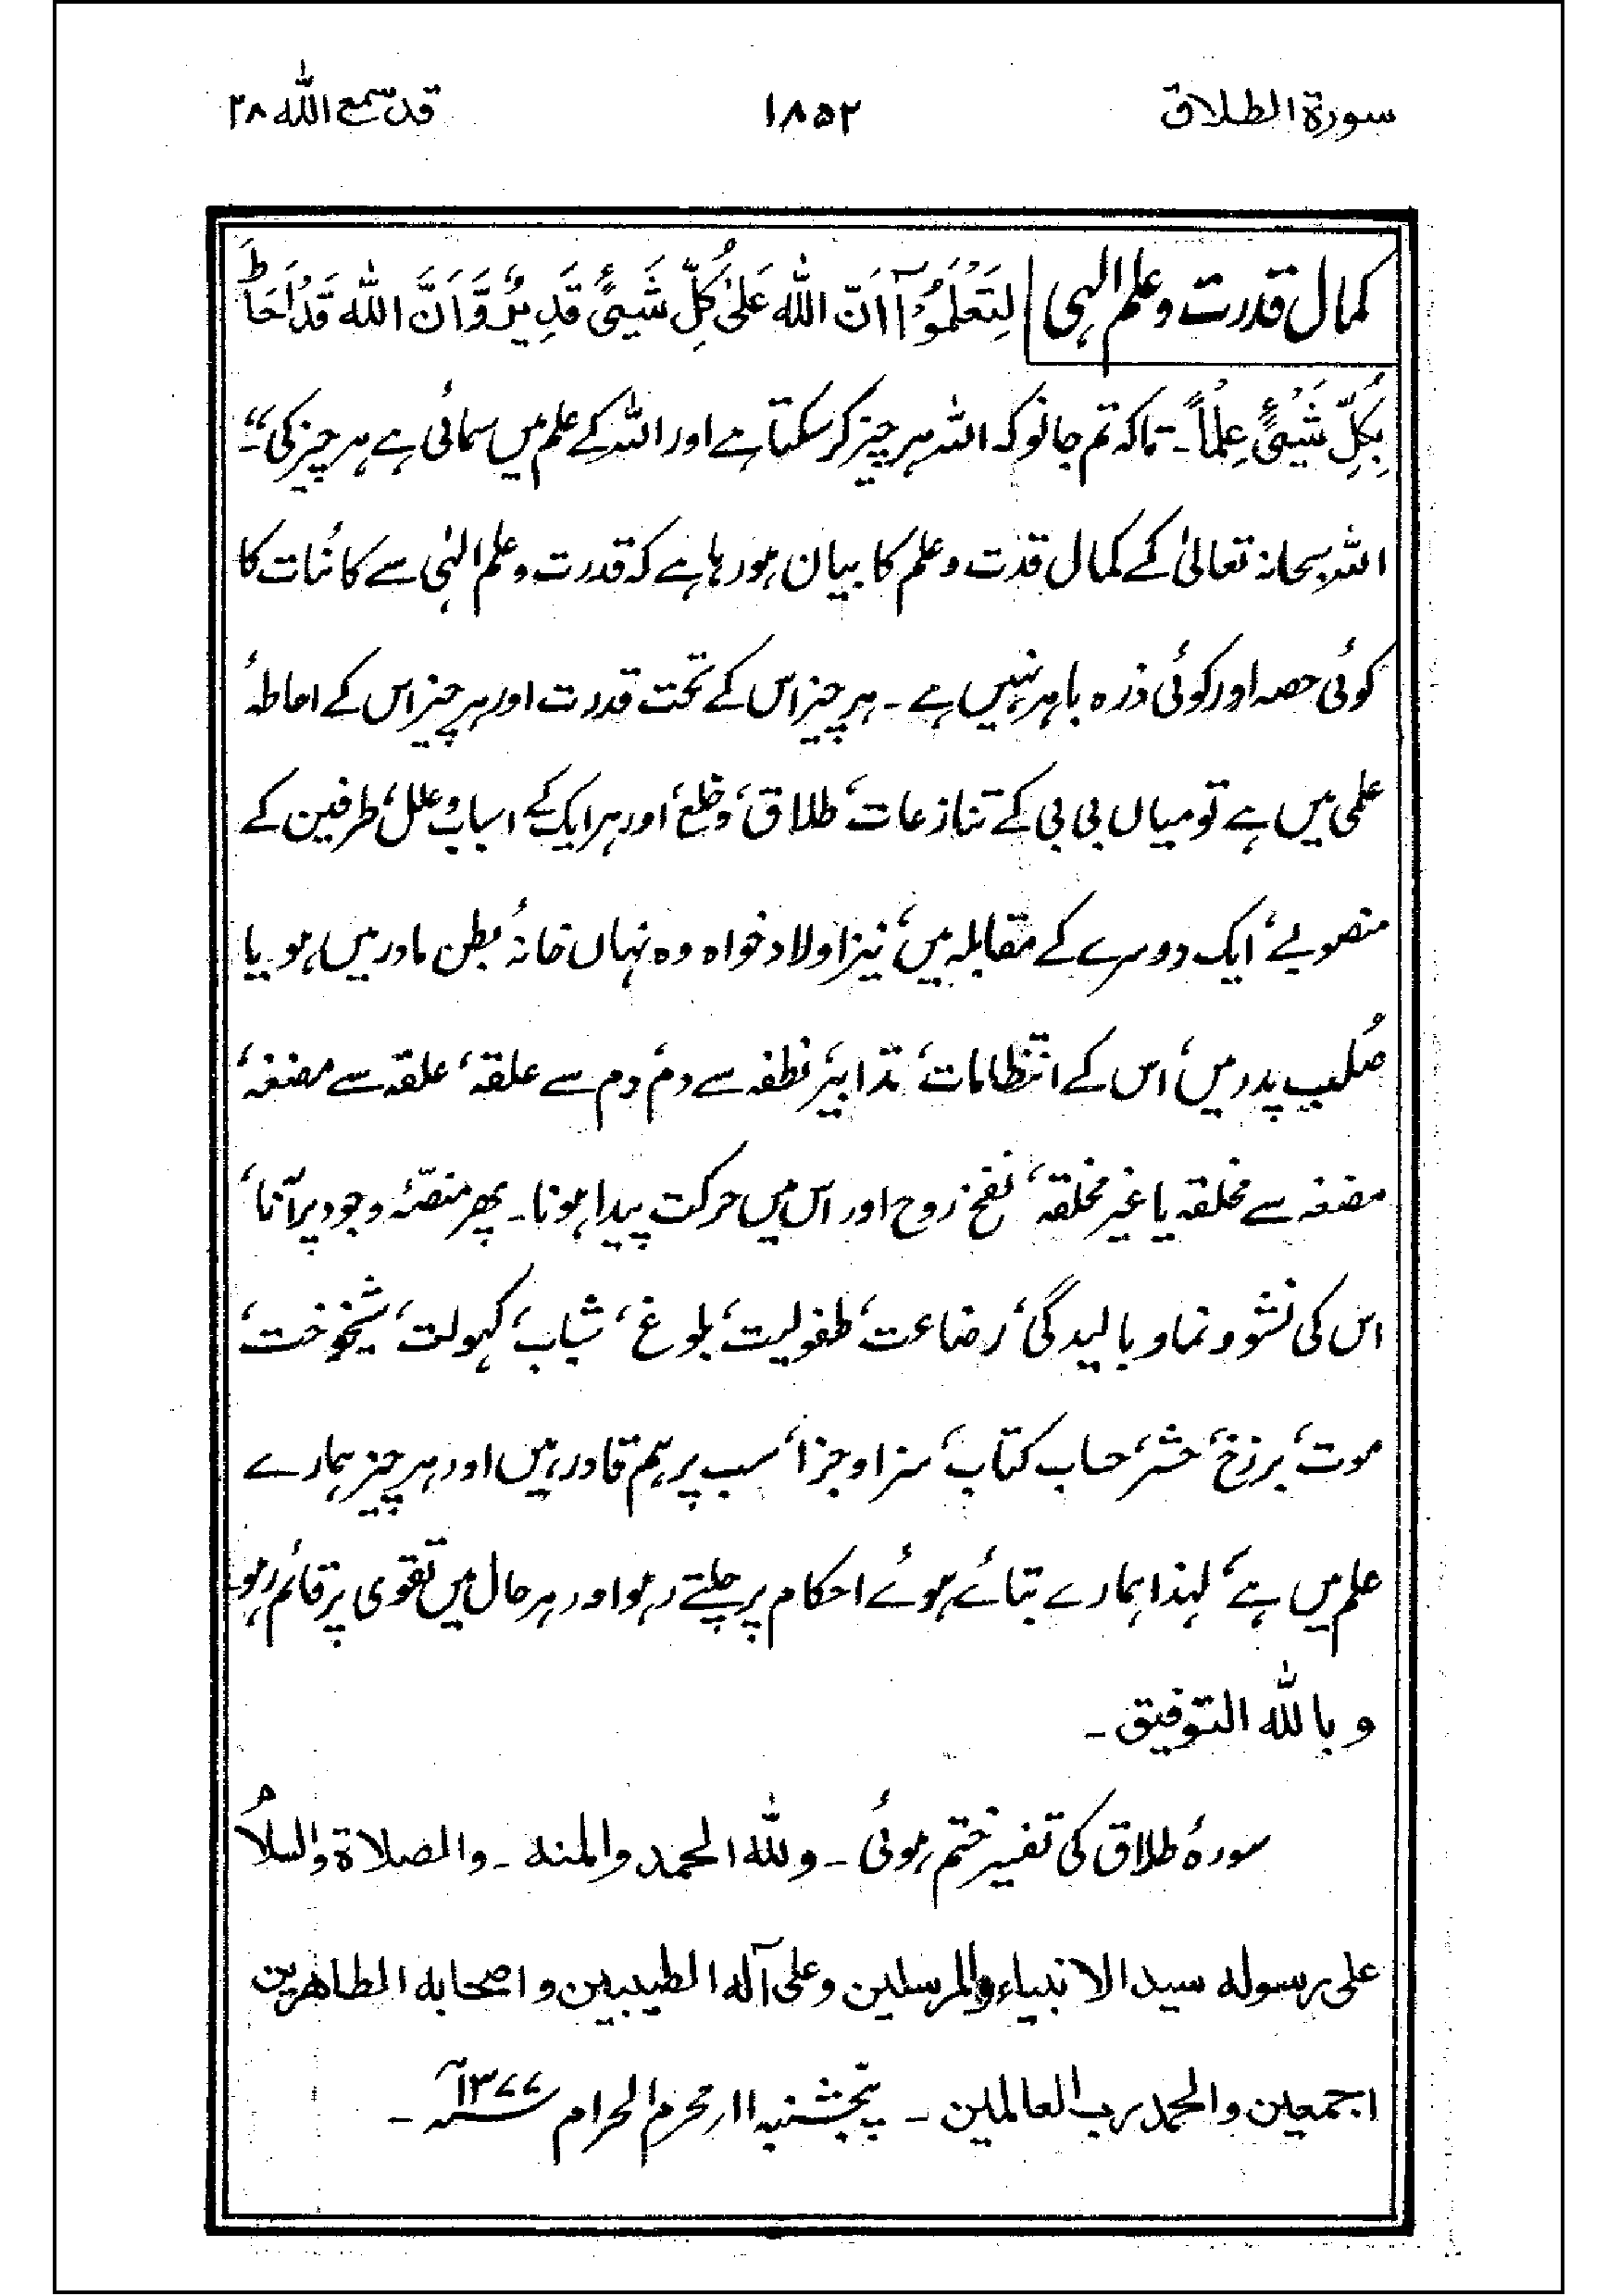 سورة الطلاق ۱۸۵۲ قد سمع الله ۲۸
کمال قدرت و علم الہی لِتَعْلَمُوْآ اَنَّ اللهَ عَلٰى كُلِّ شَيْئٍ قَدِيْرٌ وَّاَنَّ اللهَ قَدْ اَحَاطَ
بِكُلِّ شَيْئٍ عِلْماً۔ تاکہ تم جانو کہ اللہ ہر چیز کر سکتا ہے اور اللہ کے علم میں سمائی ہے ہر چیز کی“۔
اللہ سبحانہ تعالیٰ کے کمال قدرت و علم کا بیان ہو رہا ہے کہ قدرت و علم الٰہی سے کائنات کا
کوئی حصہ اور کوئی ذرہ باہر نہیں ہے ۔ ہر چیز اس کے تحت قدرت اور ہر چیز اس کے احاطۂ
علمی میں ہے تو میاں بی بی کے تنازعات، طلاق، و خلع، اور ہر ایک کے اسباب و علل، طرفین کے
منصوبے، ایک دوسرے کے مقابلہ میں، نیز اولاد خواہ وہ نہاں خانۂ بطن مادر میں ہو یا
صُلب پدر میں، اس کے انتظامات، تدابیر، نطفہ سے دم، دم سے علقہ، علقہ سے مضغہ،
مضغہ سے مخلقہ یا غیر مخلقہ، نفخ روح اور اس میں حرکت پیدا ہونا۔ پھر منصّۂ وجود پر آنا،
اس کی نشو و نما و بالیدگی، رضاعت، طفولیت، بلوغ، شباب، کہولت، شیخوخت،
موت، برزخ، حشر، حساب کتاب، سزا و جزا، سب پر ہم قادر ہیں اور ہر چیز ہمارے
علم میں ہے، لہذا ہمارے بتائے ہوئے احکام پر چلتے رہو اور ہر حال میں تقوی پر قائم رہو
و بالله التوفیق ۔
سورۂ طلاق کی تفسیر ختم ہوئی ۔ ولله الحمد والمنه ۔ والصلاة والسلامُ
علی رسوله سید الانبیاء والمرسلین وعلی آله الطیبین و اصحابه الطاهرین
اجمعین والحمد رب العالمین ۔ پنجشنبہ ۱۱ محرم الحرام ۱۳۷۷ھ ۔